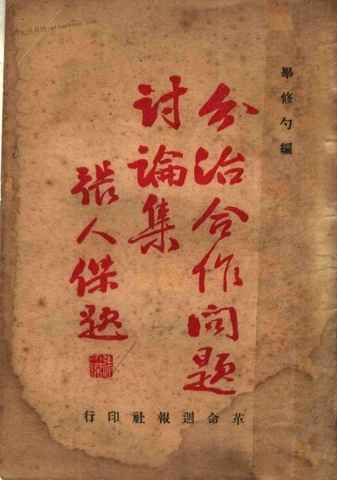 畢修勺編
分治合作問題
討論集
張人傑題
革命週報社印行